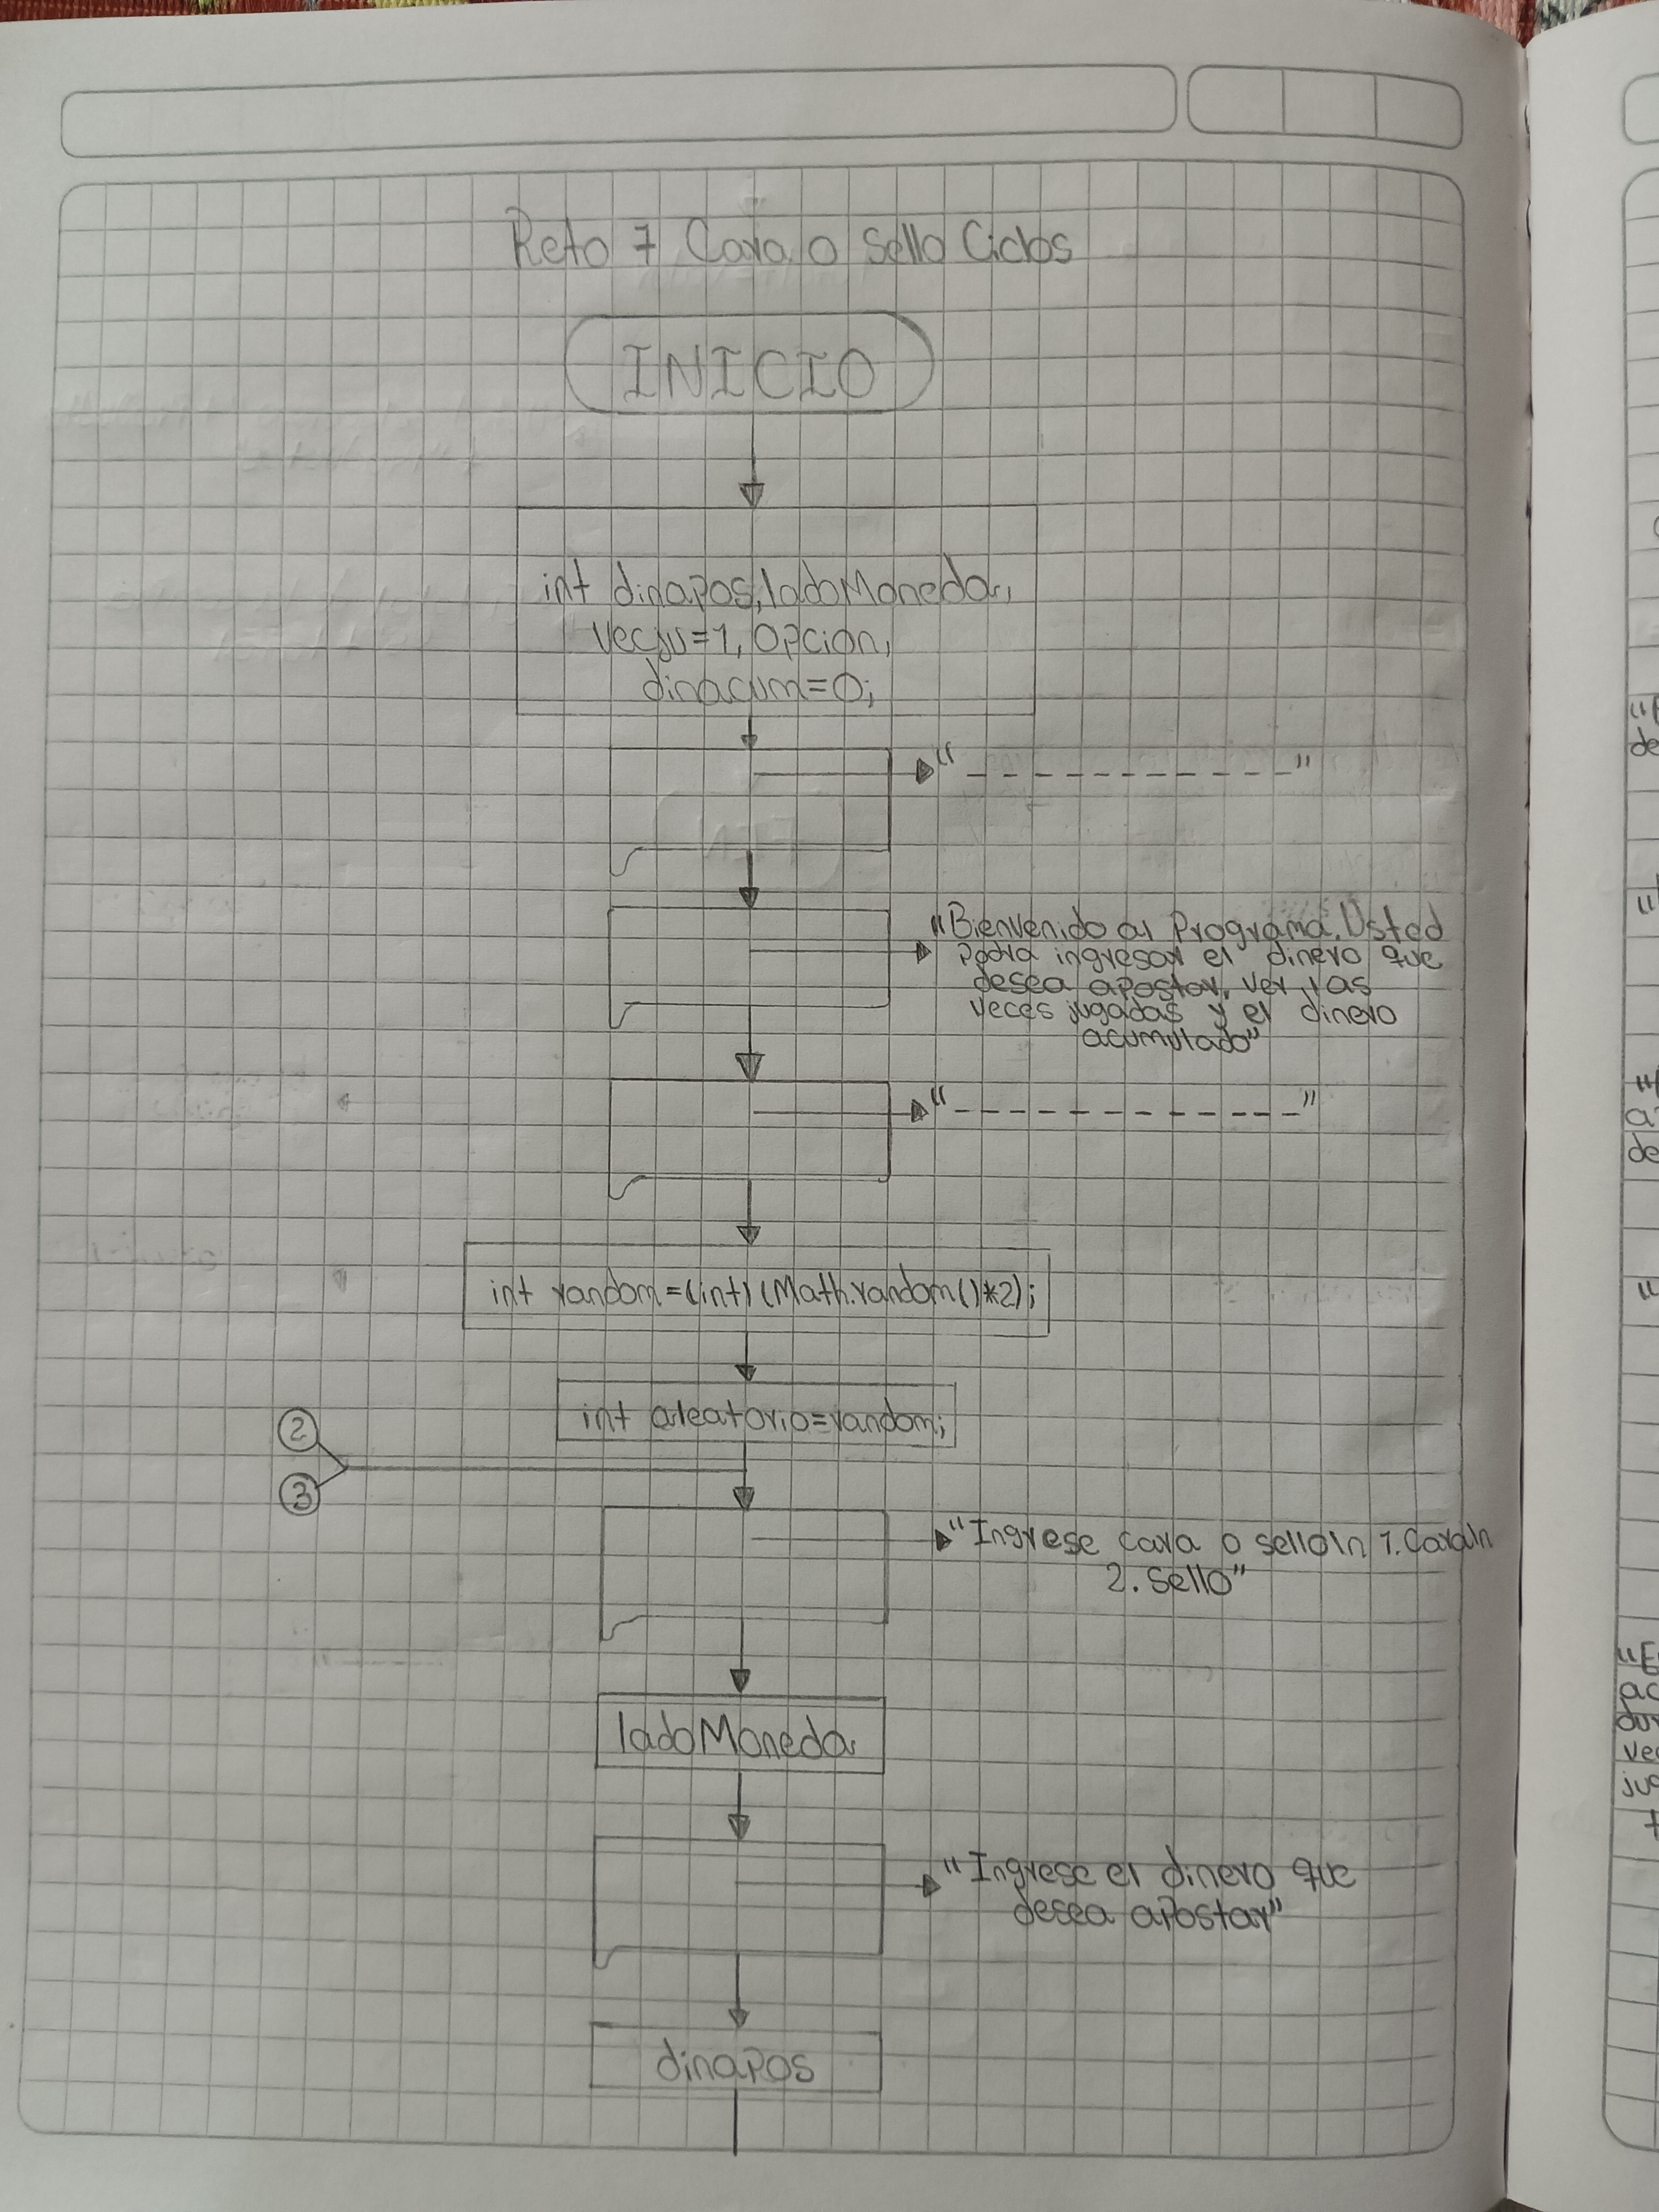 Reto 7 Cara o Sello Ciclos
INICIO
int dinapos, ladoMoneda,
vecju=1, opcion,
dinacum=0;
"------------"
"Bienvenido al Programa. Usted
Podra ingresar el dinero que
desea apostar, ver las
veces jugadas y el dinero
acumulado"
"------------"
int random=(int)(Math.random()*2);
int aleatorio=random;
2
3
"Ingrese cara o sello\n 1. Cara\n
2. Sello"
ladoMoneda
"Ingrese el dinero que
desea apostar"
dinapos